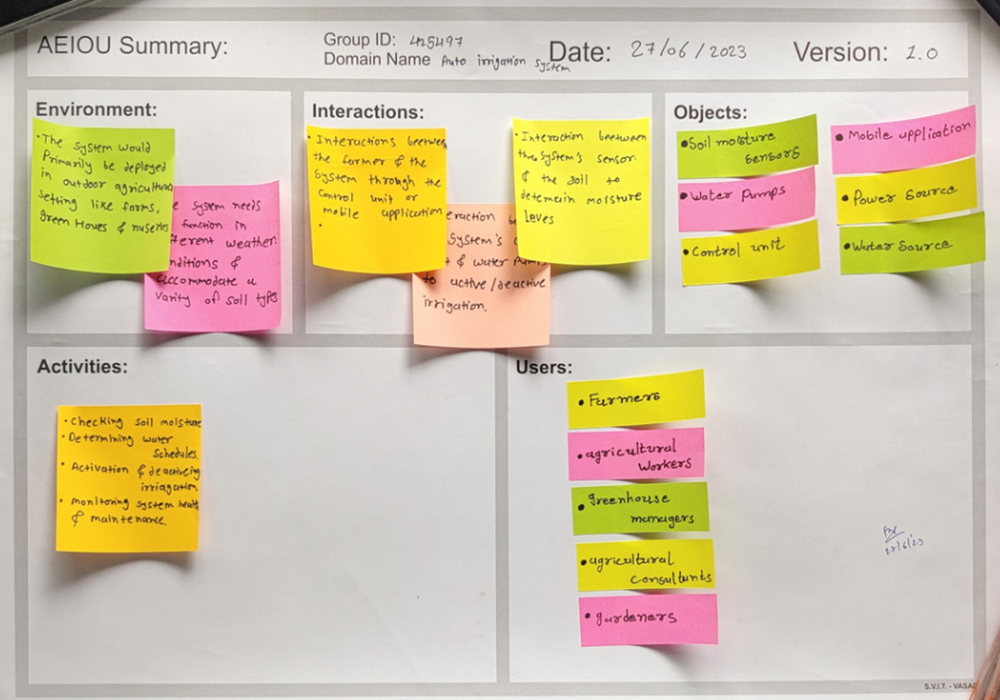 AEIOU Summary:
Group ID: 425497
Domain Name Auto irrigation System
Date: 27/06/2023
Version: 1.0
Environment:
• The System would
Primarily be deployed
in outdoor agricultural
Setting like forms,
Green Houes & nuseries
e system needs
function in
ferent weather
nditions &
accommodate a
varity of soil types
Interactions:
• Interactions beetween
the former & the
System through the
Control unit or
mobile application
•
eraction be
System's c
& water Pump
to active/deactive
irrigation.
• Interaction beetween
the System's sensor
& the soil to
detemain moisture
leves
Objects:
• Soil moisture
sensors
• Water Pumps
• Control unit
• Mobile application
• Power Source
• Water Source
Activities:
• Checking Soil moisture
• Determining water
Schedules.
• Activation & deactiveing
irriagation
• monitoring system health
& maintenance.
Users:
• Farmers
• agricultural
workers
• Greenhouse
managers
• agricultural
consultants
• gardenars
27/6/23
S.V.I.T. - VASAD